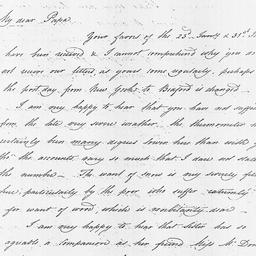 My dear Papa
Your favors of the 23d Jany & 31st
have been received & I cannot comprehend why you do
not receive our letters as yours come regularly, perhaps
the post day from New York to Bedford is changed
I am very happy to hear that you have not suffered
from the late very severe weather. the thermometer
certainly been many degrees lower here than with
tho' the accounts vary so much that I dare not state
the number - The want of snow is very severely felt
here, particularly by the poor who suffer extremely
for want of wood, which is exorbitantly dear -
I am very happy to hear that sister has so
agreeable a companion as her friend Miss Mc